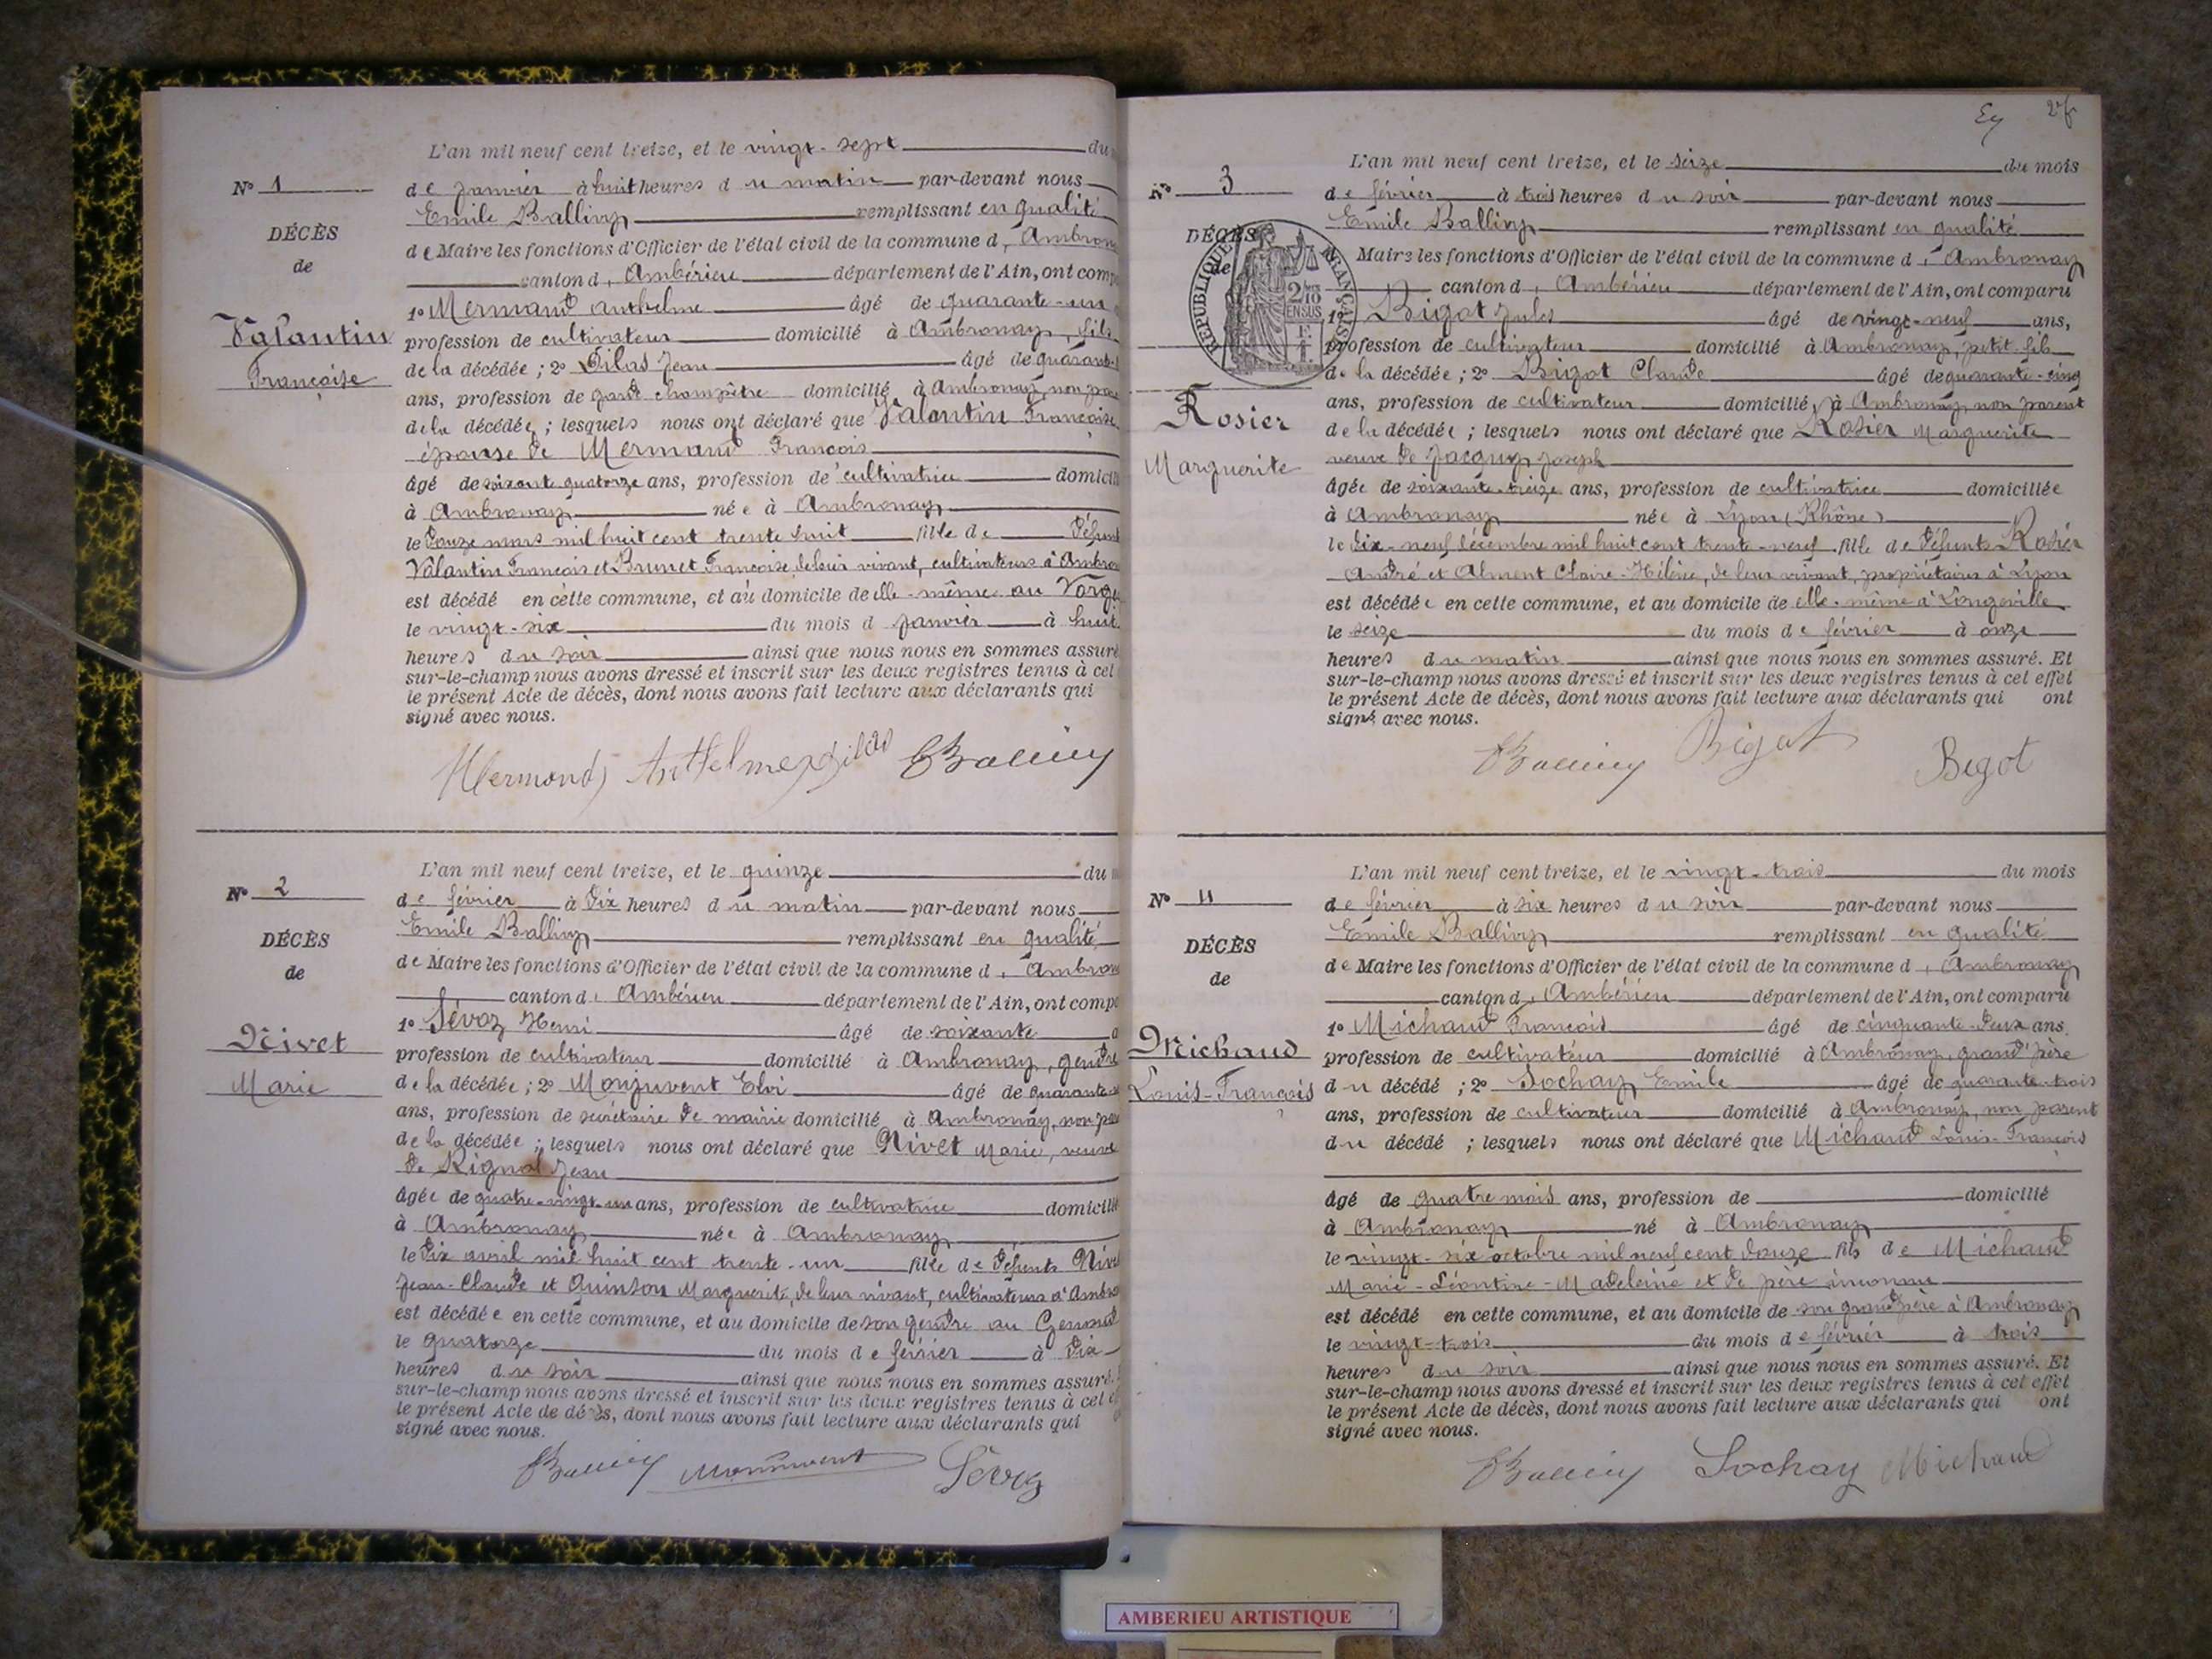 L'an mil neuf cent treize, et le vingt-sept du
N° 1
de janvier à huit heures du matin par-devant nous
Emile Ballivy remplissant en qualité
DÉCÈS
de
de Maire les fonctions d'Officier de l'état civil de la commune d'
canton d'Ambérieu département de l'Ain, ont
1° Mermand Anthelme âgé de quarante-un
Valantin
Françoise
profession de cultivateur domicilié à Ambronay, fils
de la décédée ; 2° Pilas Jean âgé de
ans, profession de garde champêtre domicilié à Ambronay, non
de la décédée ; lesquels nous ont déclaré que Valantin Françoise
épouse de Mermand François
âgé de soixante quatorze ans, profession de cultivatrice
à Ambronay née à Ambronay
le douze mars mil huit cent trente huit fille de
Valantin François et Brunet Françoise, de leur vivant, cultivateurs à
est décédé en cette commune, et au domicile de elle-même au
le vingt-six du mois d janvier à huit
heures du soir ainsi que nous nous en sommes assuré
sur-le-champ nous avons dressé et inscrit sur les deux registres tenus à cet
le présent Acte de décès, dont nous avons fait lecture aux déclarants qui
signé avec nous.
Mermond Anthelme Pilas EBallivy
L'an mil neuf cent treize, et le quinze du
N° 2
de février à dix heures du matin par-devant nous
Emile Ballivy remplissant en qualité
DÉCÈS
de
de Maire les fonctions d'Officier de l'état civil de la commune d'
canton d'Ambérieu département de l'Ain, ont
1° Sévoz Henri âgé de soixante
Nivet
Marie
profession de cultivateur domicilié à Ambronay, gendre
de la décédée ; 2° Monjuvent Elvi âgé de quarante
ans, profession de secrétaire de mairie domicilié à Ambronay, non
de la décédée ; lesquels nous ont déclaré que Nivet Marie, veuve
de Rignol Jean
âgée de quatre-vingt-un ans, profession de cultivatrice
à Ambronay née à Ambronay
le dix avril mil huit cent trente-un fille de défunts
Jean-Claude et Quinson Marguerite, de leur vivant, cultivateurs à
est décédée en cette commune, et au domicile de son gendre au
le quatorze du mois de février à dix
heures du soir ainsi que nous nous en sommes assuré.
sur-le-champ nous avons dressé et inscrit sur les deux registres tenus à cet
le présent Acte de décès, dont nous avons fait lecture aux déclarants qui
signé avec nous.
EBallivy Monjuvent Sévoz
L'an mil neuf cent treize, et le seize du mois
N° 3
de février à trois heures du soir par-devant nous
Emile Ballivy remplissant en qualité
DÉCÈS
de
RÉPUBLIQUE FRANÇAISE
Maire les fonctions d'Officier de l'état civil de la commune d'Ambronay
canton d'Ambérieu département de l'Ain, ont comparu
1° Bigot Jules âgé de vingt-neuf ans,
profession de cultivateur domicilié à Ambronay, petit fils
de la décédée ; 2° Bigot Claude âgé de quarante-cinq
Rosier
Marguerite
ans, profession de cultivateur domicilié à Ambronay, non parent
de la décédée ; lesquels nous ont déclaré que Rosier Marguerite
veuve de Jacquy Joseph
âgée de soixante-treize ans, profession de cultivatrice domiciliée
à Ambronay née à Lyon (Rhône)
le dix-neuf décembre mil huit cent trente-neuf fille de défunts Rosier
André et Alment Claire-Hélène, de leur vivant, propriétaires à Lyon
est décédée en cette commune, et au domicile de elle-même à Longeville
le seize du mois de février à onze
heures du matin ainsi que nous nous en sommes assuré. Et
sur-le-champ nous avons dressé et inscrit sur les deux registres tenus à cet effet
le présent Acte de décès, dont nous avons fait lecture aux déclarants qui ont
signé avec nous.
EBallivy Bigot Bigot
L'an mil neuf cent treize, et le vingt-trois du mois
N° 4
de février à six heures du soir par-devant nous
Emile Ballivy remplissant en qualité
DÉCÈS
de
de Maire les fonctions d'Officier de l'état civil de la commune d'Ambronay
canton d'Ambérieu département de l'Ain, ont comparu
1° Michaud François âgé de cinquante-deux ans,
Michaud
Louis-François
profession de cultivateur domicilié à Ambronay, grand'père
du décédé ; 2° Sochay Emile âgé de quarante-trois
ans, profession de cultivateur domicilié à Ambronay, non parent
du décédé ; lesquels nous ont déclaré que Michaud Louis-François
âgé de quatre mois ans, profession de domicilié
à Ambronay né à Ambronay
le vingt-six octobre mil neuf cent douze fils de Michaud
Marie-Léontine-Madeleine et de père inconnu
est décédé en cette commune, et au domicile de son grand'père à Ambronay
le vingt-trois du mois de février à trois
heures du soir ainsi que nous nous en sommes assuré. Et
sur-le-champ nous avons dressé et inscrit sur les deux registres tenus à cet effet
le présent Acte de décès, dont nous avons fait lecture aux déclarants qui ont
signé avec nous.
EBallivy Sochay Michaud
AMBERIEU ARTISTIQUE